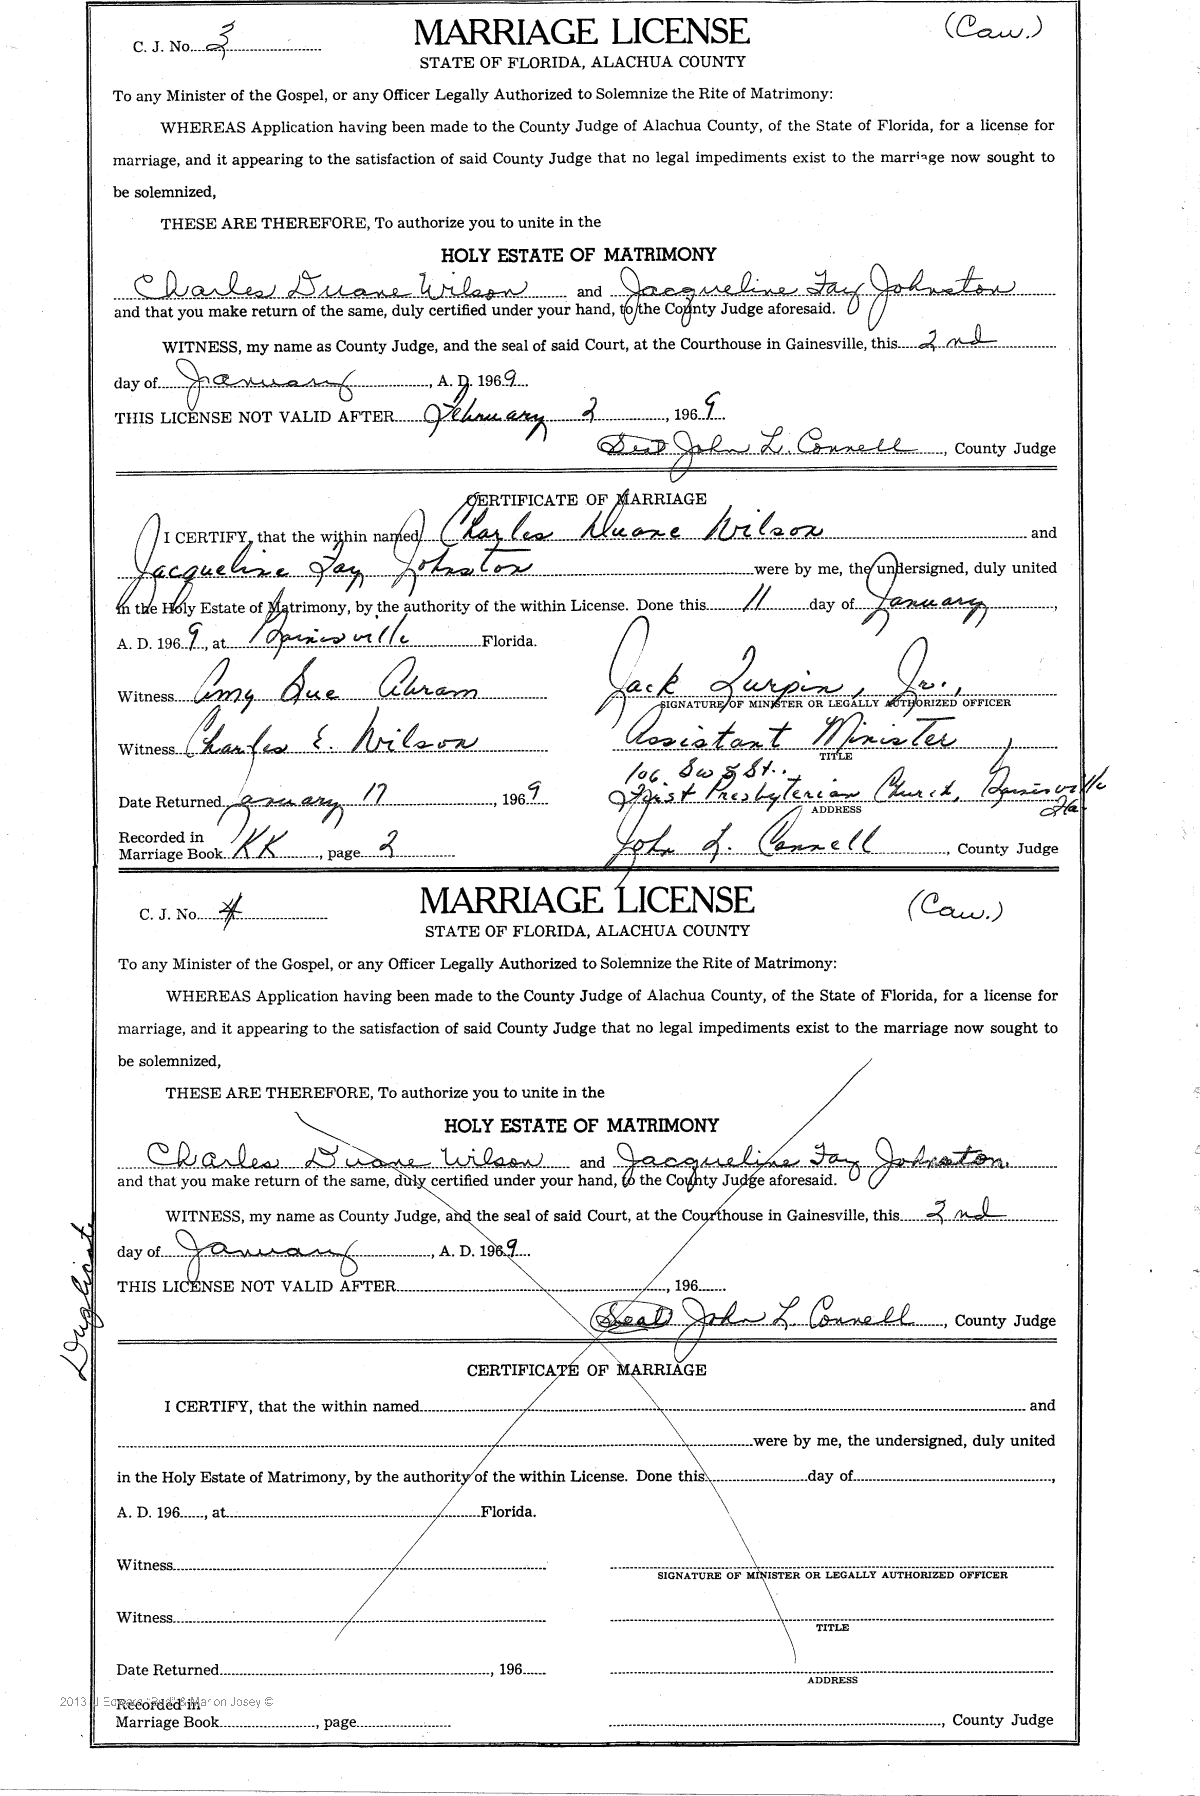 C. J. No. 3
MARRIAGE LICENSE
(Cau.)
STATE OF FLORIDA, ALACHUA COUNTY
To any Minister of the Gospel, or any Officer Legally Authorized to Solemnize the Rite of Matrimony:
WHEREAS Application having been made to the County Judge of Alachua County, of the State of Florida, for a license for
marriage, and it appearing to the satisfaction of said County Judge that no legal impediments exist to the marriage now sought to
be solemnized,
THESE ARE THEREFORE, To authorize you to unite in the
HOLY ESTATE OF MATRIMONY
Charles Duane Wilson and Jacqueline Fay Johnston
and that you make return of the same, duly certified under your hand, to the County Judge aforesaid.
WITNESS, my name as County Judge, and the seal of said Court, at the Courthouse in Gainesville, this 2nd
day of January, A. D. 1969
THIS LICENSE NOT VALID AFTER February 2, 1969
Seal John L. Connell, County Judge
CERTIFICATE OF MARRIAGE
I CERTIFY, that the within named Charles Duane Wilson and
Jacqueline Fay Johnston were by me, the undersigned, duly united
in the Holy Estate of Matrimony, by the authority of the within License. Done this 11 day of January,
A. D. 1969, at Gainesville Florida.
Witness Amy Sue Abram
Jack Turpin, Jr.,
SIGNATURE OF MINISTER OR LEGALLY AUTHORIZED OFFICER
Witness Charles E. Wilson
Assistant Minister
TITLE
106 SW 3 St.
Date Returned January 17, 1969
First Presbyterian Church, Gainesville
Fla.
ADDRESS
Recorded in
Marriage Book KK, page 2
John L. Connell, County Judge
C. J. No. 4
MARRIAGE LICENSE
(Cau.)
STATE OF FLORIDA, ALACHUA COUNTY
To any Minister of the Gospel, or any Officer Legally Authorized to Solemnize the Rite of Matrimony:
WHEREAS Application having been made to the County Judge of Alachua County, of the State of Florida, for a license for
marriage, and it appearing to the satisfaction of said County Judge that no legal impediments exist to the marriage now sought to
be solemnized,
THESE ARE THEREFORE, To authorize you to unite in the
HOLY ESTATE OF MATRIMONY
Charles Duane Wilson and Jacqueline Fay Johnston.
and that you make return of the same, duly certified under your hand, to the County Judge aforesaid.
WITNESS, my name as County Judge, and the seal of said Court, at the Courthouse in Gainesville, this 2nd
day of January, A. D. 1969
THIS LICENSE NOT VALID AFTER, 196
Duplicate
Seal John L Connell, County Judge
CERTIFICATE OF MARRIAGE
I CERTIFY, that the within named and
were by me, the undersigned, duly united
in the Holy Estate of Matrimony, by the authority of the within License. Done this day of,
A. D. 196, at Florida.
Witness
SIGNATURE OF MINISTER OR LEGALLY AUTHORIZED OFFICER
Witness
TITLE
Date Returned, 196
ADDRESS
2013 J Edward "Bud" & Marion Josey ©
Recorded in
Marriage Book, page
, County Judge